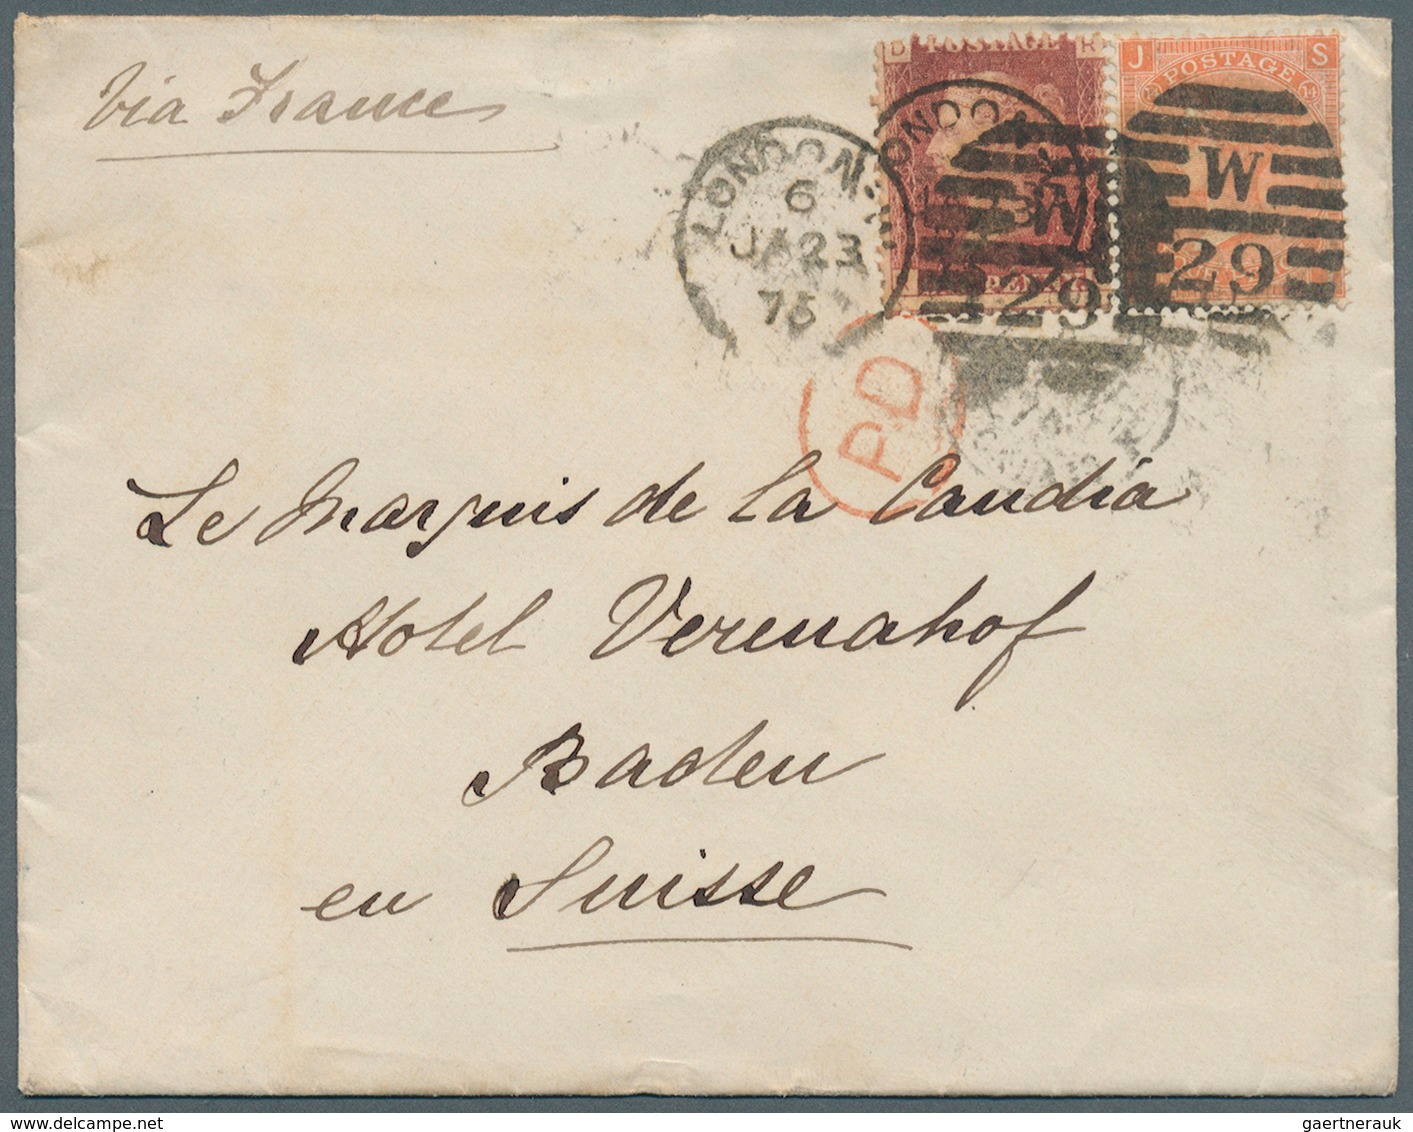 via France
D POSTAGE R
J POSTAGE S
14
LONDON
6
JA 23
75
LONDON
W
29
W
29
PENNY
PD
Le Marquis de la Caudia
Hotel Verenahof
Baden
en Suisse
gaertnerauk